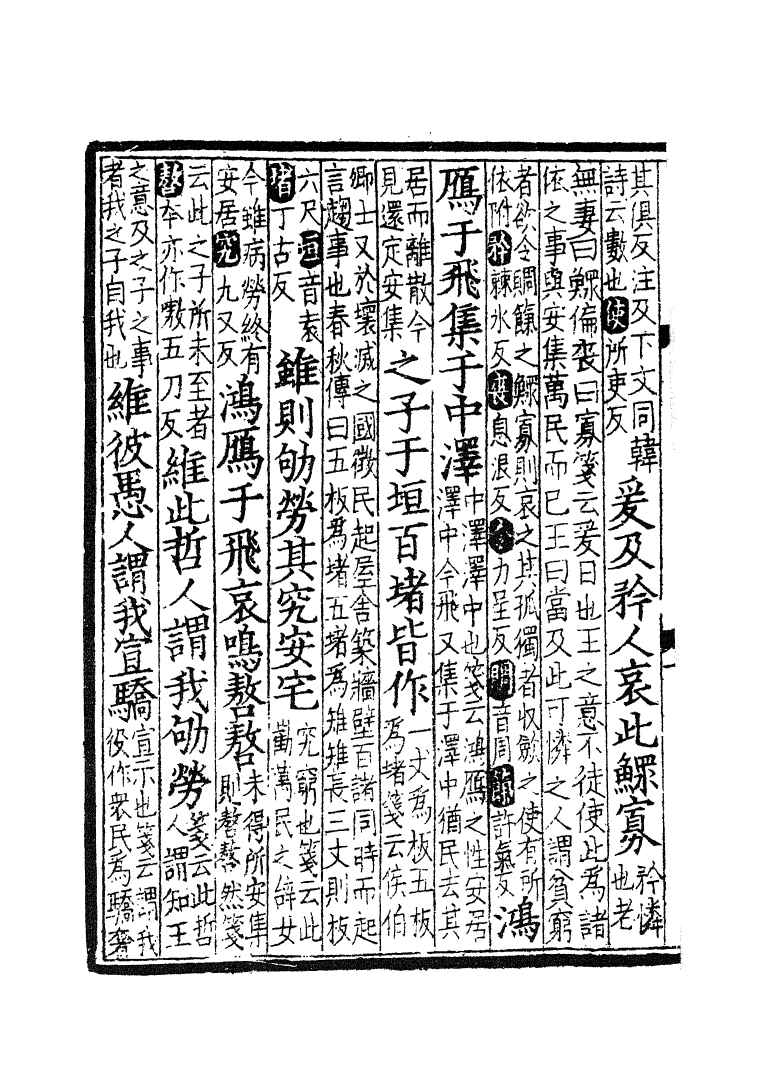 其俱反注及下文同韓
詩云數也使所吏反
爰及矜人哀此鰥寡
矜憐
也老
無妻曰鰥偏喪曰寡箋云爰曰也王之意不徒使此為諸
侯之事與安集萬民而已王曰當及此可憐之人謂貧窮
者欲令賙餼之鰥寡則哀之其孤獨者收斂之使有所
依附矜棘冰反喪息浪反令力呈反賙音周餼許氣反
鴻
鴈于飛集于中澤
中澤澤中也箋云鴻鴈之性安居
澤中今飛又集于澤中猶民去其
居而離散今
見還定安集
之子于垣百堵皆作
一丈為板五板
為堵箋云侯伯
卿士又於壞滅之國徵民起屋舍築牆壁百諸同時而起
言趨事也春秋傳曰五板為堵五堵為雉雉長三丈則板
六尺垣音袁
堵丁古反
雖則劬勞其究安宅
究窮也箋云此
勸萬民之辭女
今雖病勞終有
安居究九又反
鴻鴈于飛哀鳴嗸嗸
未得所安集
則嗸嗸然箋
云此之子所未至者
嗸本亦作嗷五刀反
維此哲人謂我劬勞
箋云此哲
人謂知王
之意及之子之事
者我之子自我也
維彼愚人謂我宣驕
宣示也箋云謂我
役作衆民為驕奢